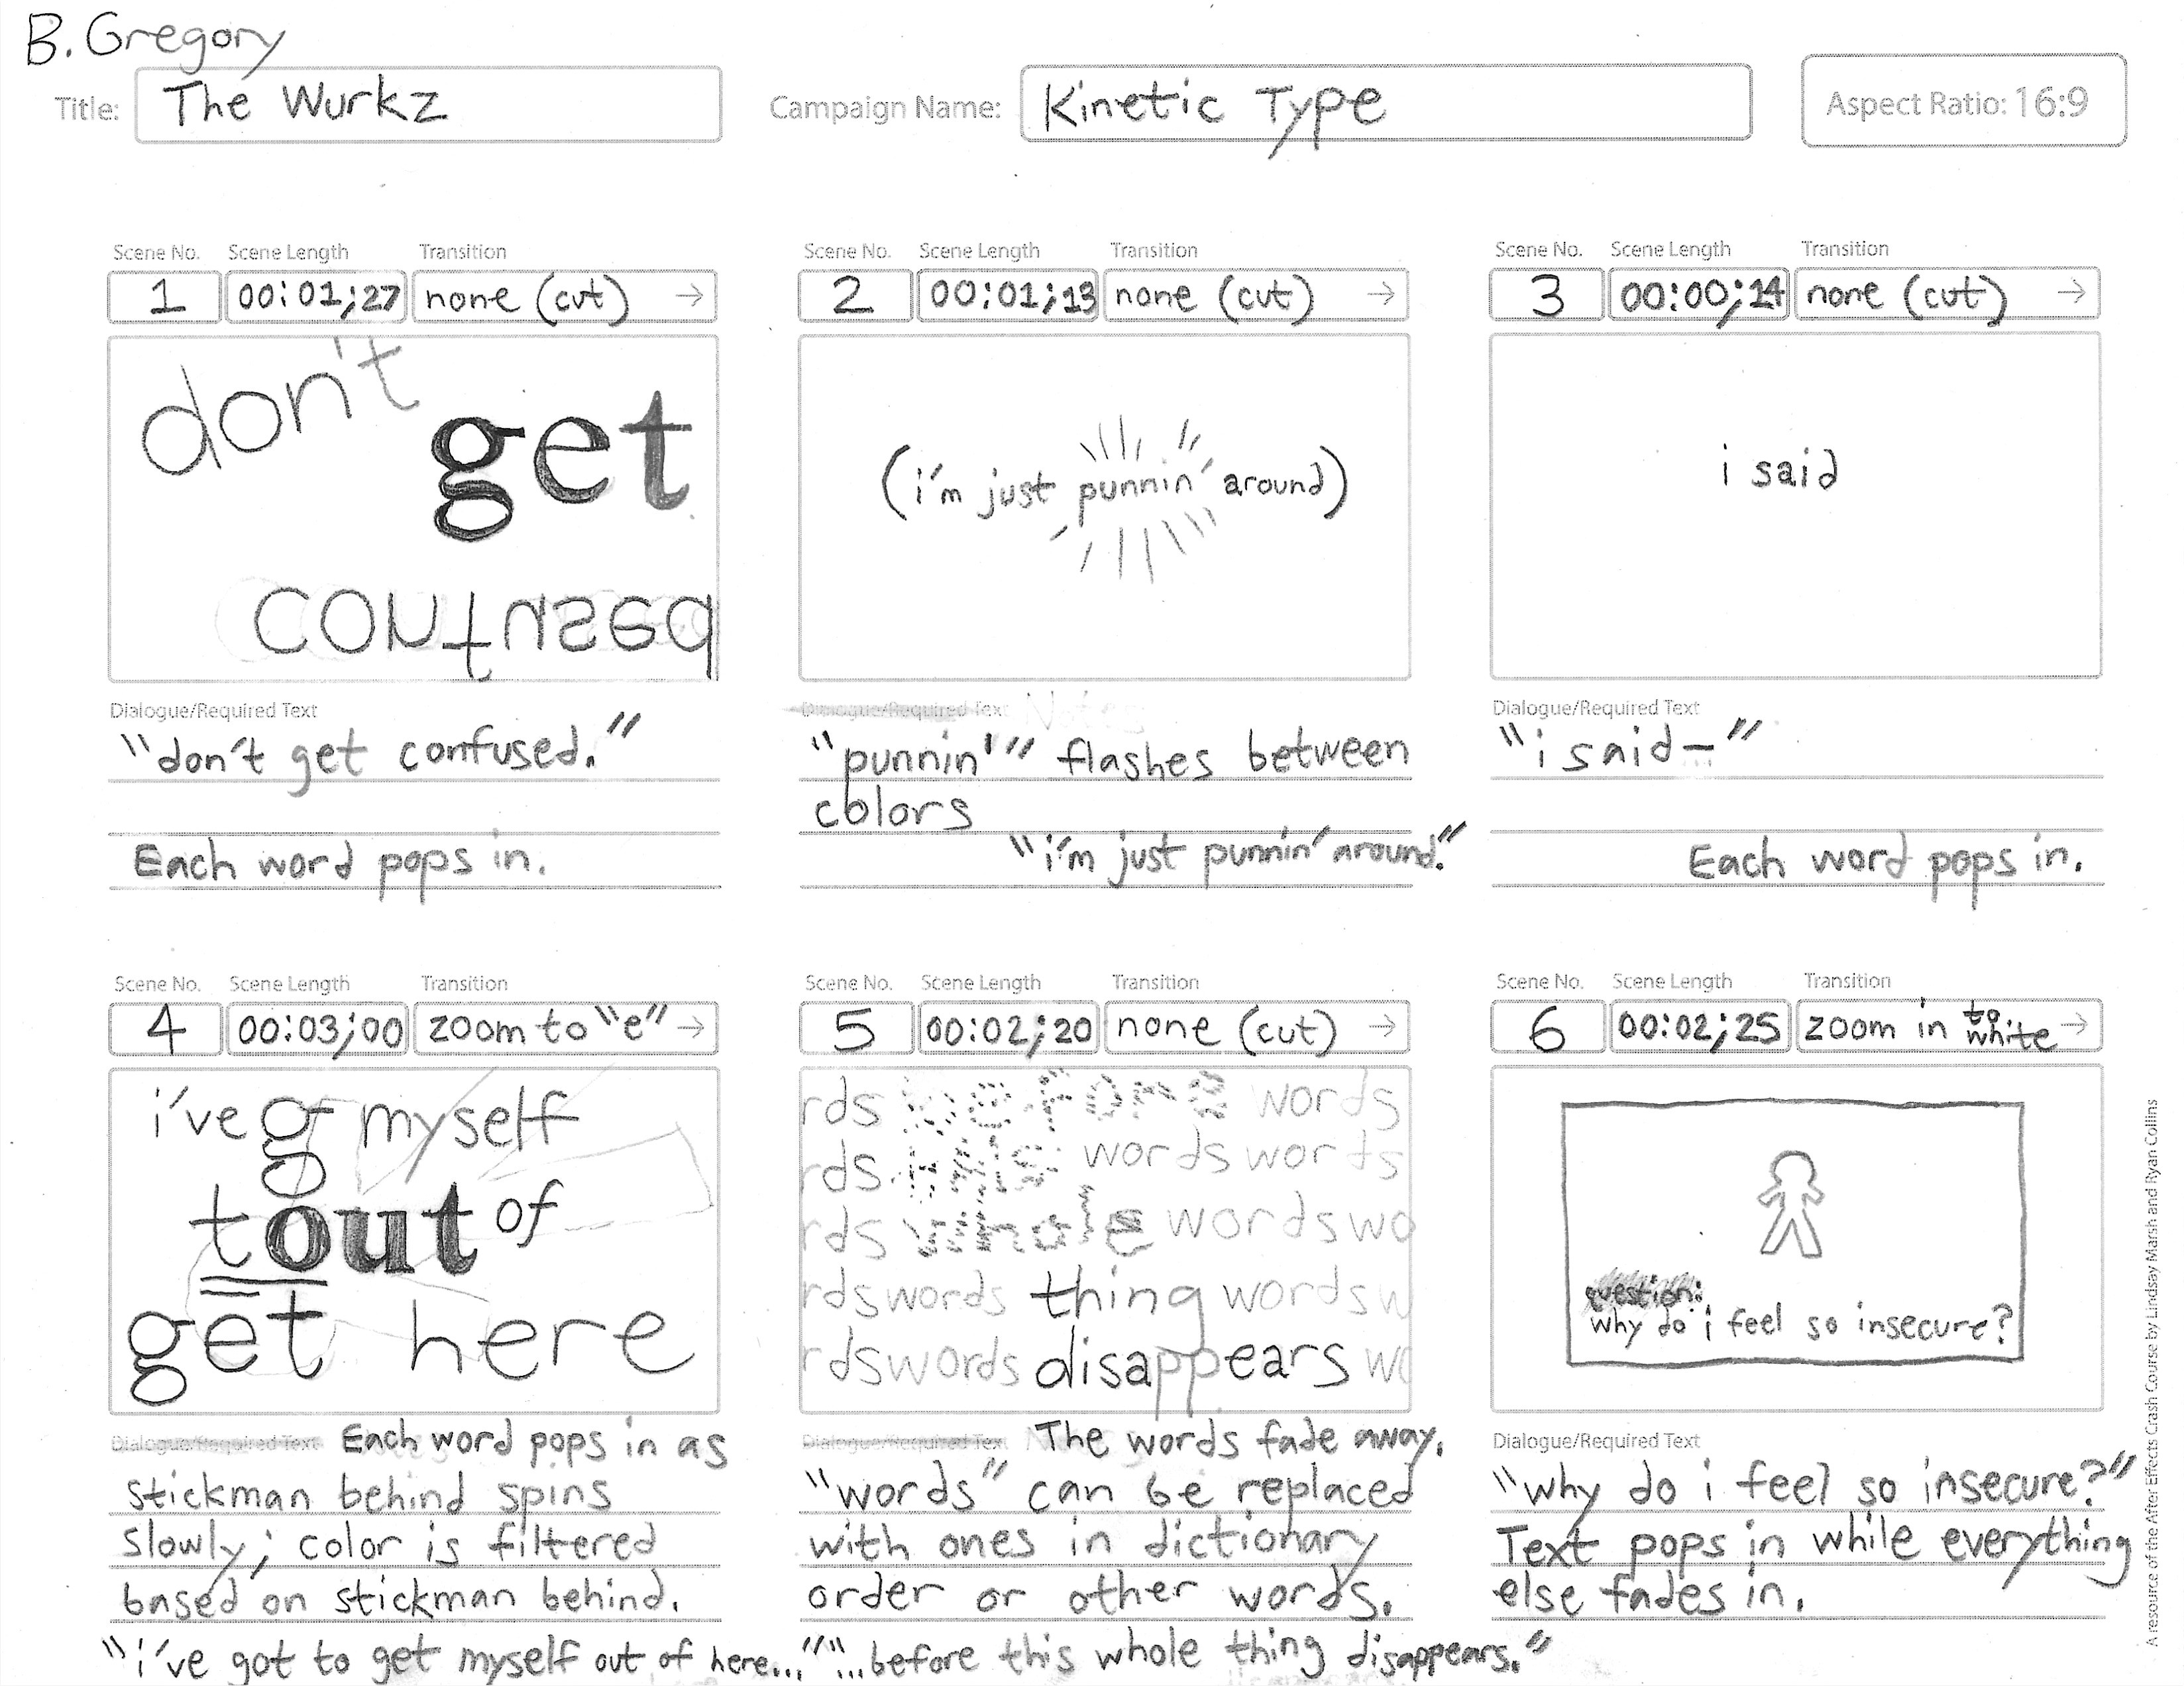 B. Gregory
Title: The Wurkz
Campaign Name: Kinetic Type
Aspect Ratio: 16:9
Scene No. Scene Length Transition
1 00:01;27 none (cut) →
don't
get
confused
Dialogue/Required Text
"don't get confused."
Each word pops in.
Scene No. Scene Length Transition
2 00:01;13 none (cut) →
(i'm just punnin' around)
Dialogue/Required Text
"punnin'" flashes between
colors
"i'm just punnin' around."
Scene No. Scene Length Transition
3 00:00;14 none (cut) →
i said
Dialogue/Required Text
"i said—"
Each word pops in.
Scene No. Scene Length Transition
4 00:03;00 zoom to "e" →
i've g myself
tout of
get here
Dialogue/Required Text Each word pops in as
stickman behind spins
slowly; color is filtered
based on stickman behind.
"i've got to get myself out of here..."
Scene No. Scene Length Transition
5 00:02;20 none (cut) →
rds words
rds words words
rds wordswo
rdswords thing wordsw
rdswords disappears wo
Dialogue/Required Text The words fade away.
"words" can be replaced
with ones in dictionary
order or other words.
"...before this whole thing disappears."
Scene No. Scene Length Transition
6 00:02;25 zoom in to white →
question:
why do i feel so insecure?
Dialogue/Required Text
"why do i feel so insecure?"
Text pops in while everything
else fades in.
A resource of the After Effects Crash Course by Lindsay Marsh and Ryan Collins